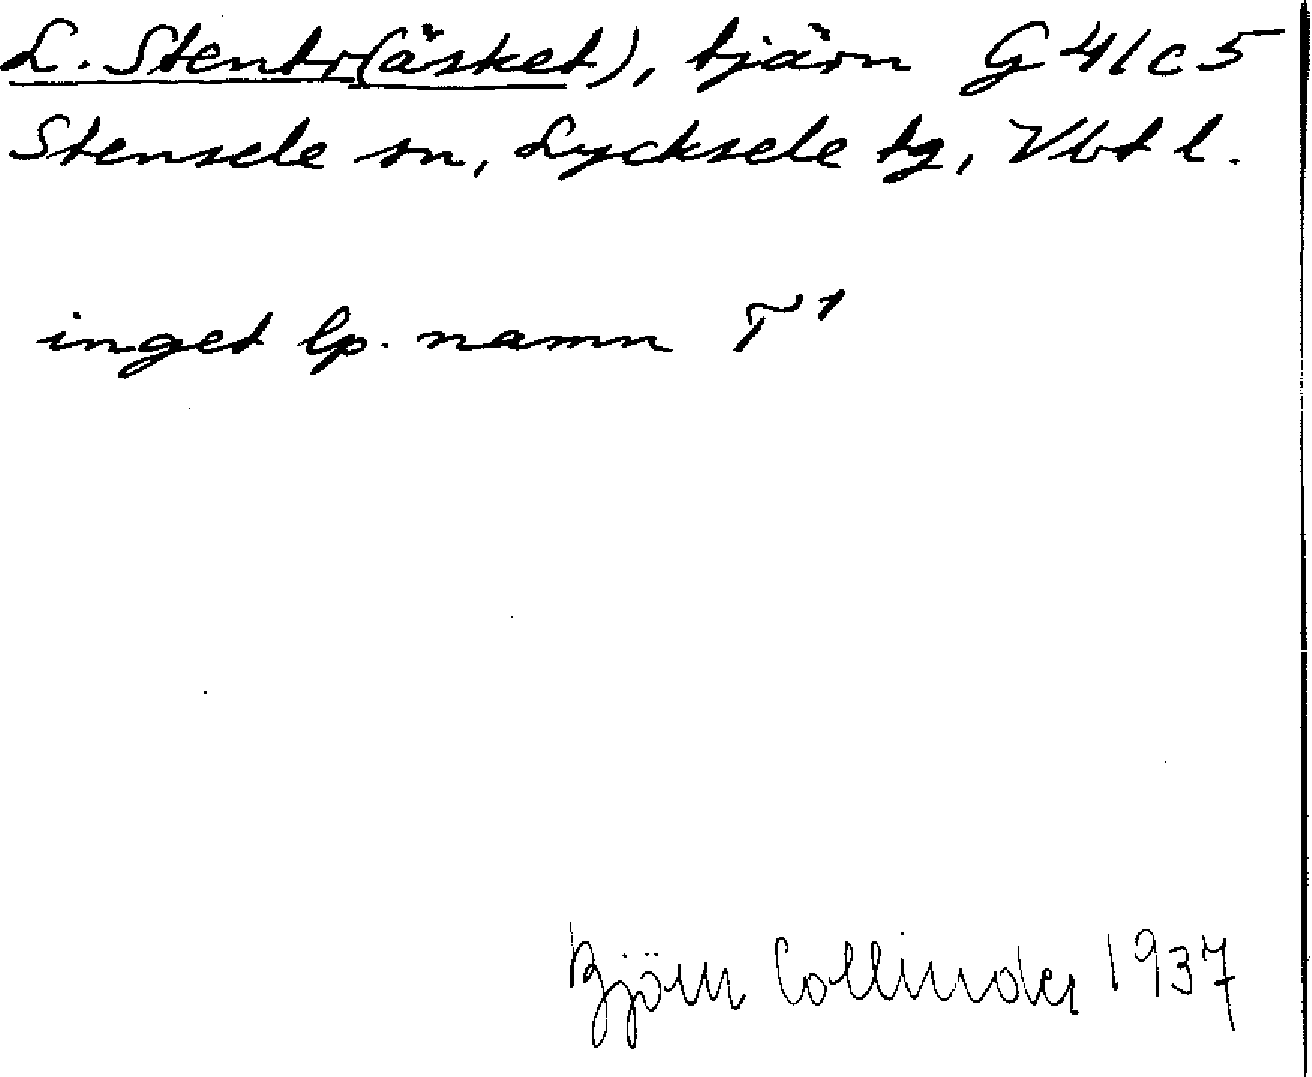 L. Stentr(äsket), tjärn G 41 c 5
Stensele sn, Lycksele tg, Vbt l.
inget lp. namn T¹
Björn Collinder 1937